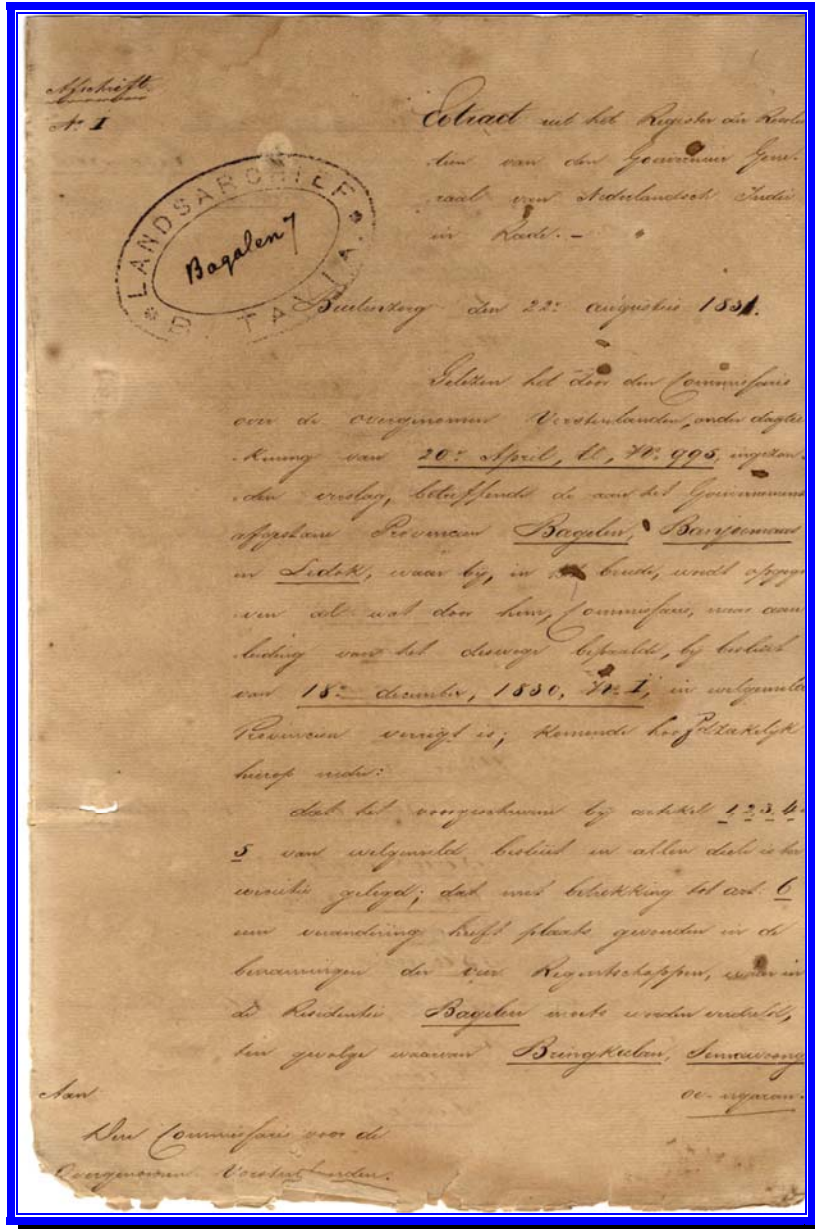 Afschrift.
No. I
Extract uit het Register der Resolu
tien van den Gouverneur Gene-
raal van Nederlandsch Indie
in Rade. -
LANDSARCHIEF
BATAVIA
Bagalen 7
Buitenzorg den 22e augustus 1831.
Gelezen het door den Commissaris
over de overgenomen Vorstenlanden, onder dagtee
kening van 20e April, tl, No. 995, ingezon-
den verslag, betreffende de aan het Gouvernement
afgestane Provincien Bagelen, Banjoemaas
en Ledok, waar bij, in het brede, wordt opgege
ven al wat door hem, Commissaris, naar aan
leiding van het deswege bepaalde, bij besluit
van 18e december, 1830, No. I, in welgemelde
Provincien verrigt is; komende hoofdzakelijk
hierop neder:
dat het voorgeschrevene bij artikel 1, 2, 3, 4-
5 van welgemeld besluit in allen deele is ter
executie gelegd; dat met betrekking tot art. 6
eene verandering heeft plaats gevonden in de
benamingen der vier Regentschappen, waar in
de Residentie Bagelen moets worden verdeeld,
ten gevolge waarvan Bringkelan, Semawoong
oe-ngaran-
Aan
Den Commissaris voor de
Overgenomen Vorstenlanden.